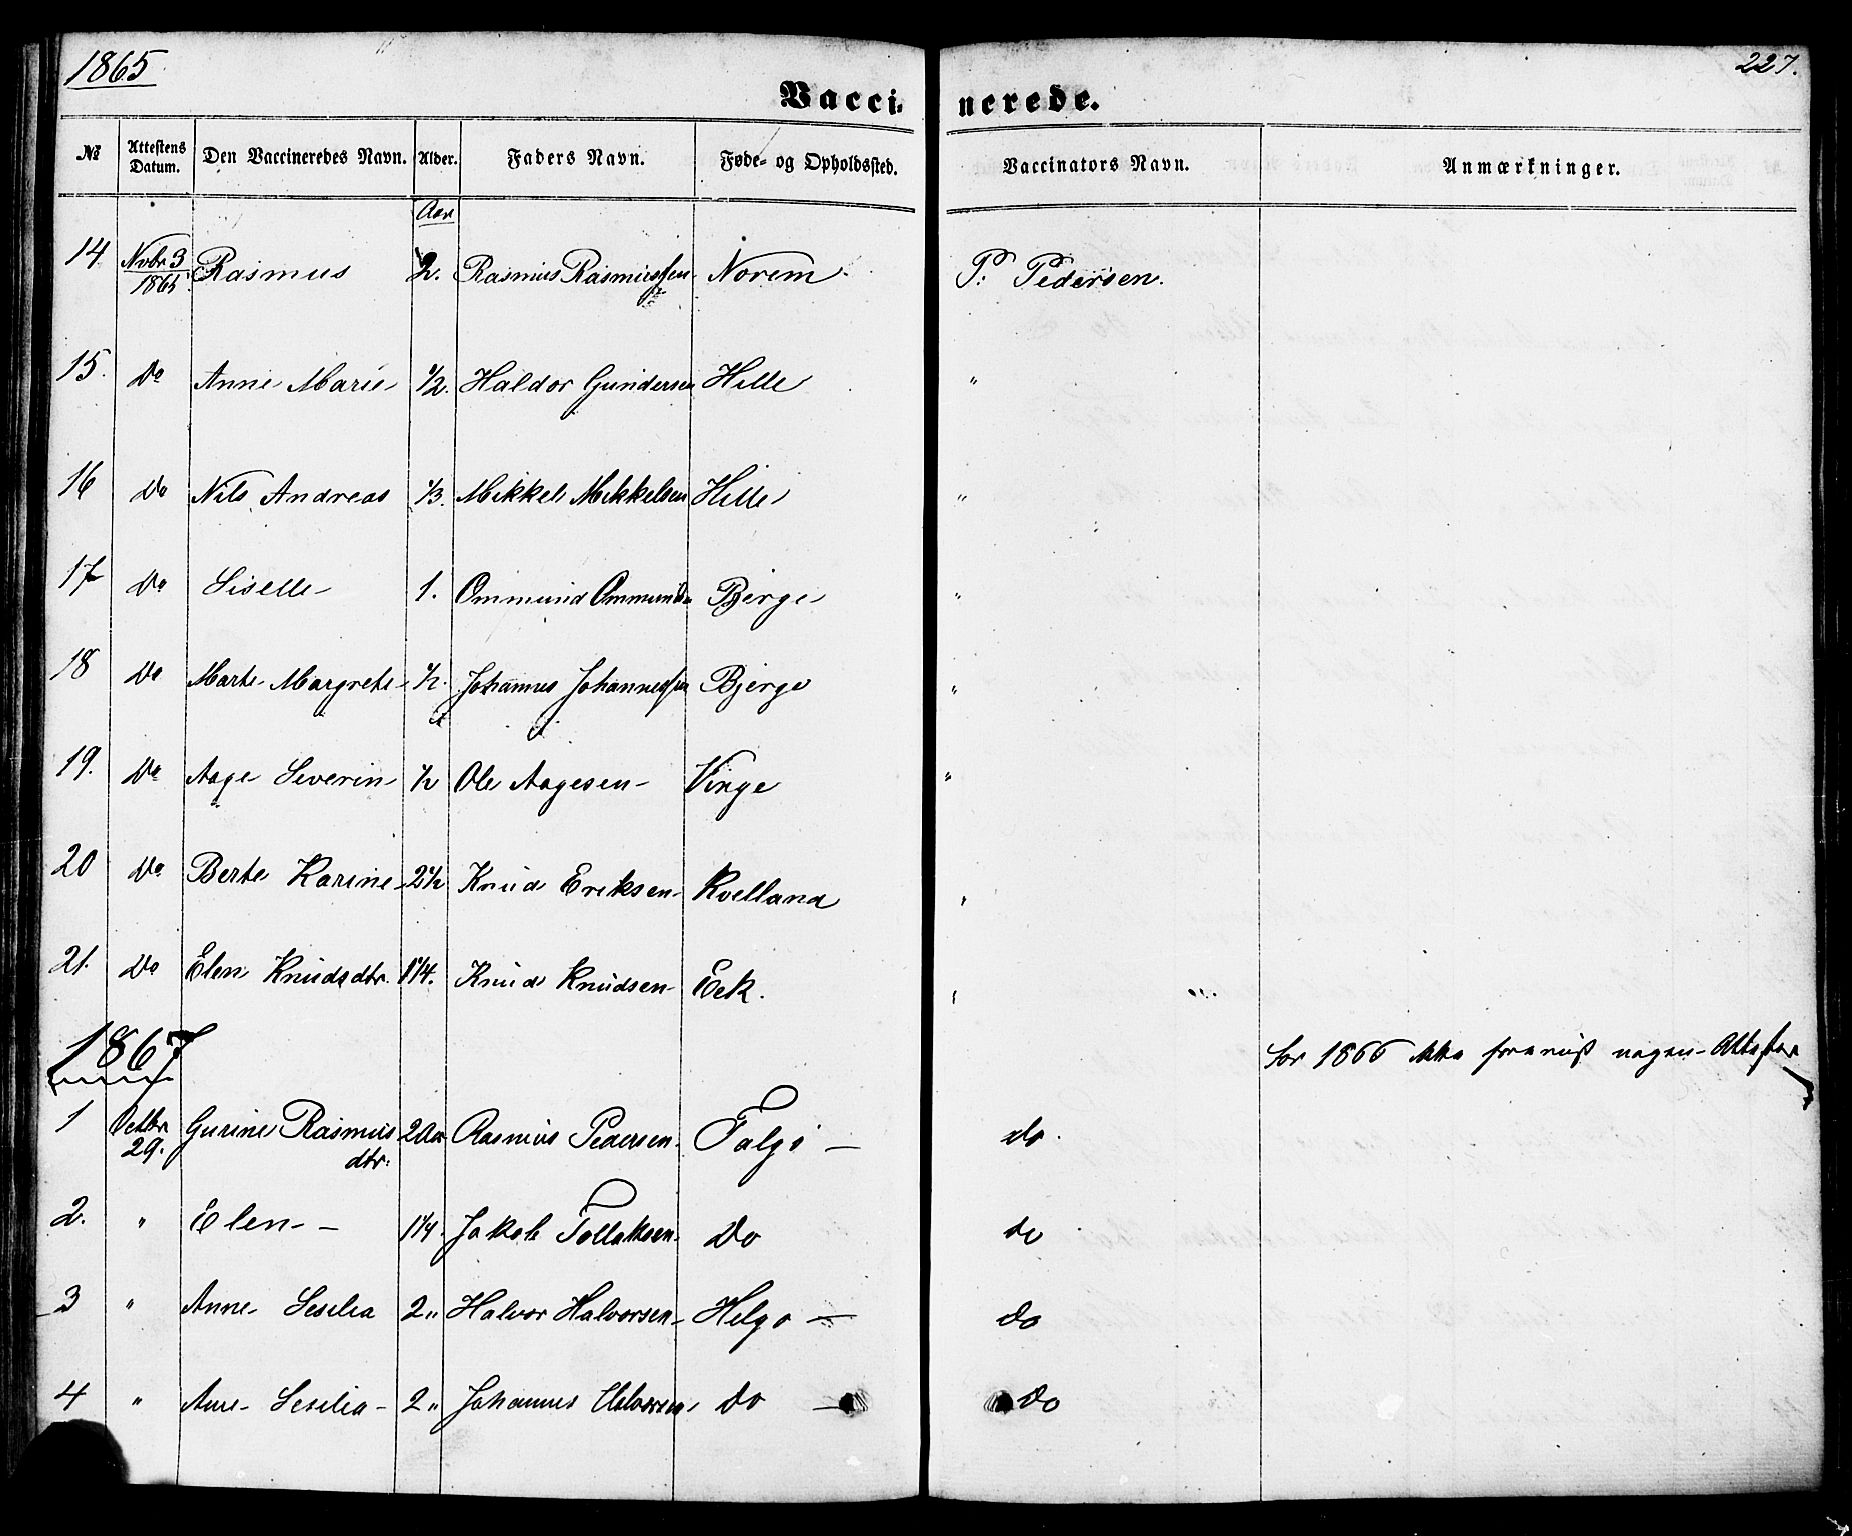 1865
227.
Vacci- nerede.
№ Attestens Datum. Den Vaccineredes Navn. Alder. Faders Navn. Føde- og Opholdssted. Vaccinators Navn. Anmærkninger.
Aar
14 Nvbr 3 1865 Rasmus 2. Rasmus Rasmussen Norem P. Pedersen.
15. Do Anne Marie 1/2. Haldor Gundersen Hille "
16 Do Nils Andreas 1/3. Mikkel Mikkelsen Hille "
17 Do Siselle 1. Ommund Ommunds Bjerge "
18 Do Marte Margrete 1/2. Johannes Johannessen Bjerge "
19. Do Aage Severin 1/2 Ole Aagesen Vinge "
20 Do Berte Karine 2 1/2 Knud Eriksen Kvelland "
21. Do Elen Knudsdtr. 1 1/4. Knud Knudsen Eek. "
1867
for 1866 ikke forevist nogen Attester
1 Octbr 29. Gurine Rasmus dtr. 2 Aar Rasmus Pedersen Talgø — do.
2. " Elen — 1 1/4. Jakob Tollaksen Do do
3 " Anne Sesilia 2 " Halvor Halvorsen Helgø — do
4 " Ane Sesilia 2 " Johannes Halvorsen do — do